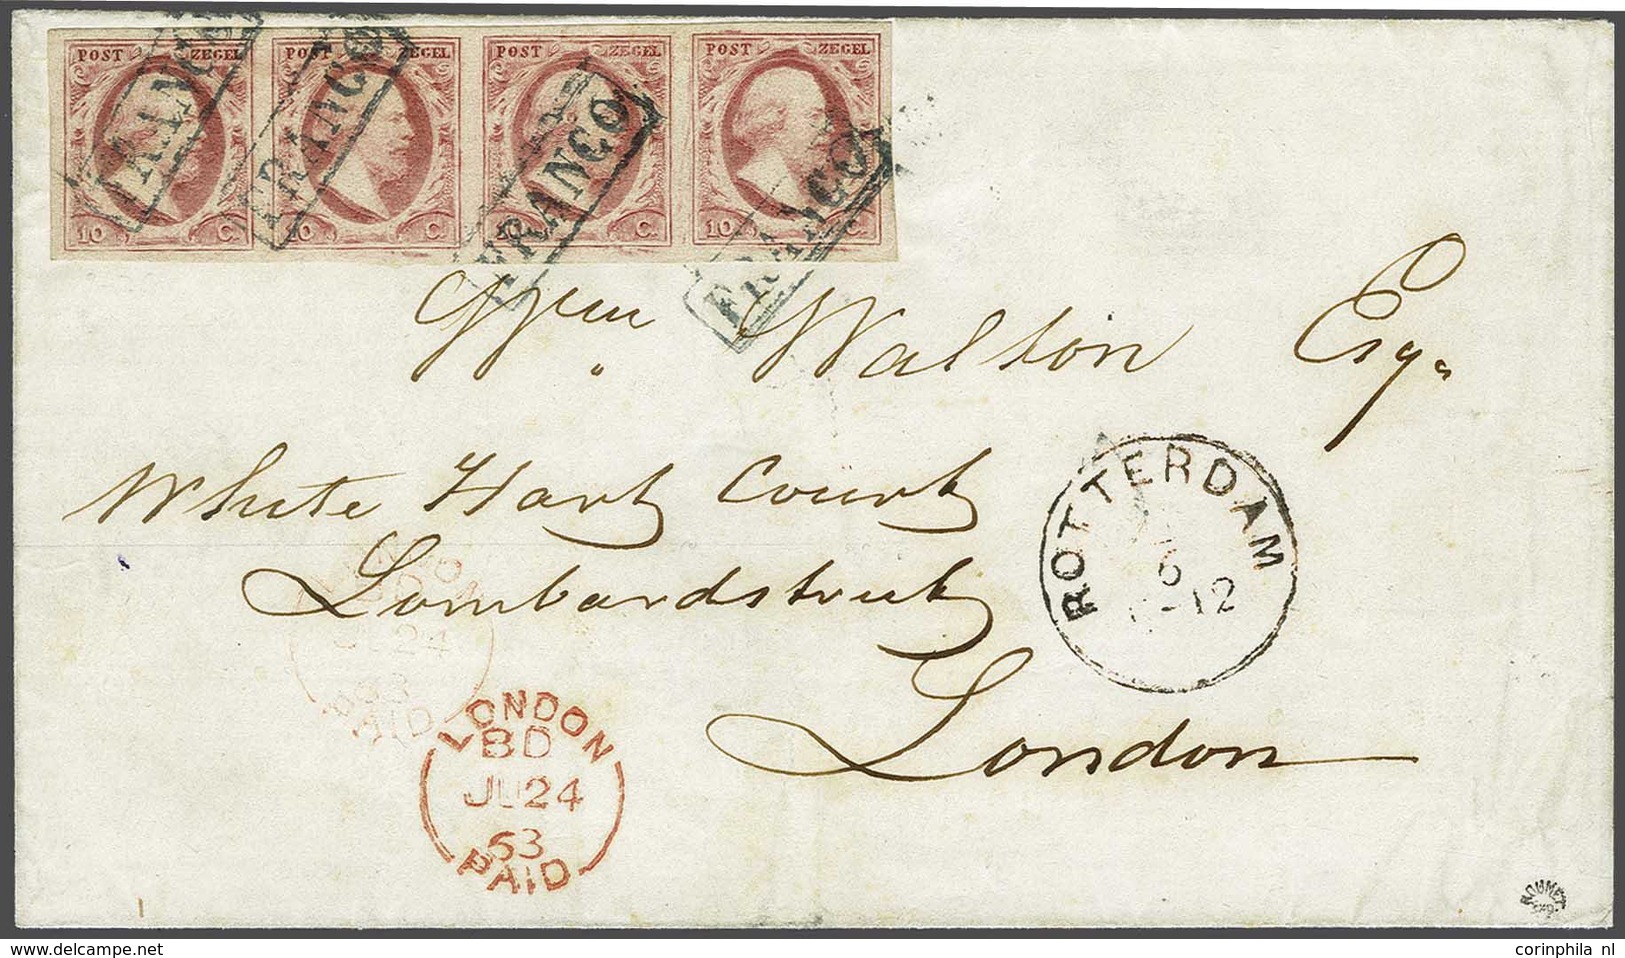 POST ZEGEL POST ZEGEL POST ZEGEL POST ZEGEL
FRANCO FRANCO FRANCO FRANCO
10 C. 10 C. C. 10 C.
Wm Walton Esq.
White Hart Court
Lombardstreet
London
ROTTERDAM
6
-12
24
PAID
LONDON
BD
JU 24
63
PAID
ROUMET
corinphila nl